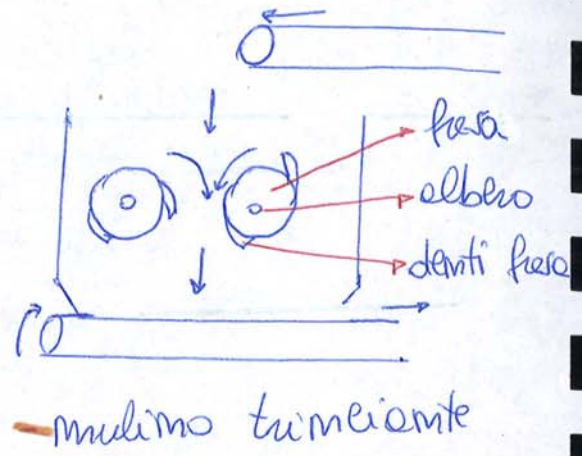 fresa
albero
denti fresa
- mulino trinciante